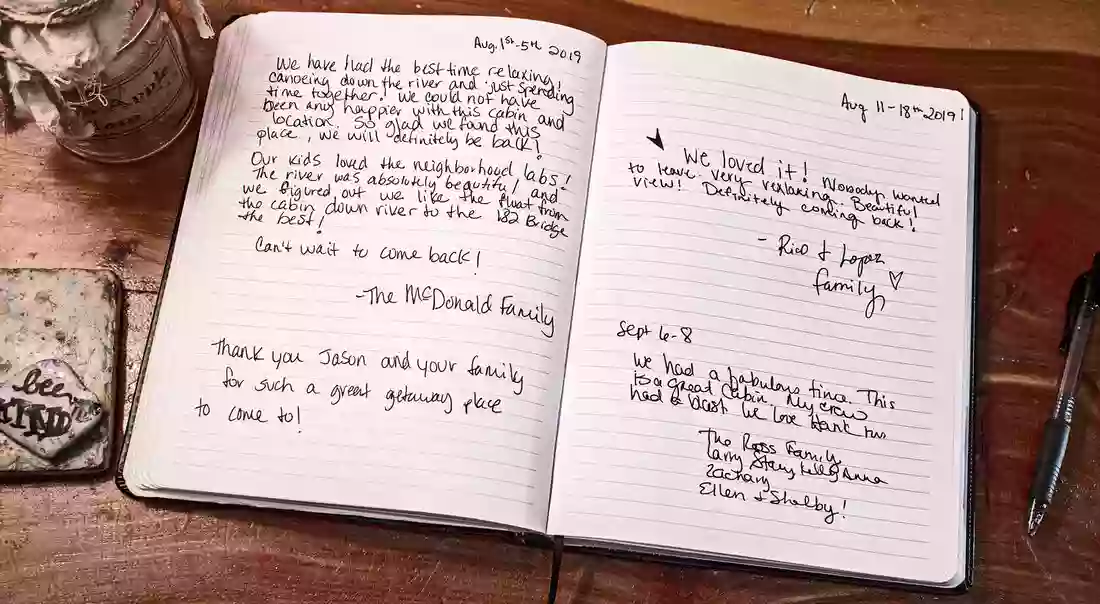 Aug. 1st-5th 2019
We have had the best time relaxing,
canoeing down the river and just spending
time together! We could not have
been any happier with this cabin and
location. So glad we found this
place, we will definitely be back!
Our kids loved the neighborhood labs!
The river was absolutely beautiful and
we figured out we like the float from
the cabin down river to the 182 Bridge
the best!
Can't wait to come back!
-The McDonald Family
Thank you Jason and your family
for such a great getaway place
to come to!
Aug 11-18th 2019!
We loved it! Nobody wanted
to leave. Very relaxing. Beautiful
view! Definitely coming back!
- Rico & Lopez
family
Sept 6-8
We had a fabulous time. This
is a great Cabin. My crew
had a blast we love
The Ross Family
Larry Stacy Kelly Anna
Zachary
Ellen & Shelby!
bee
KIND